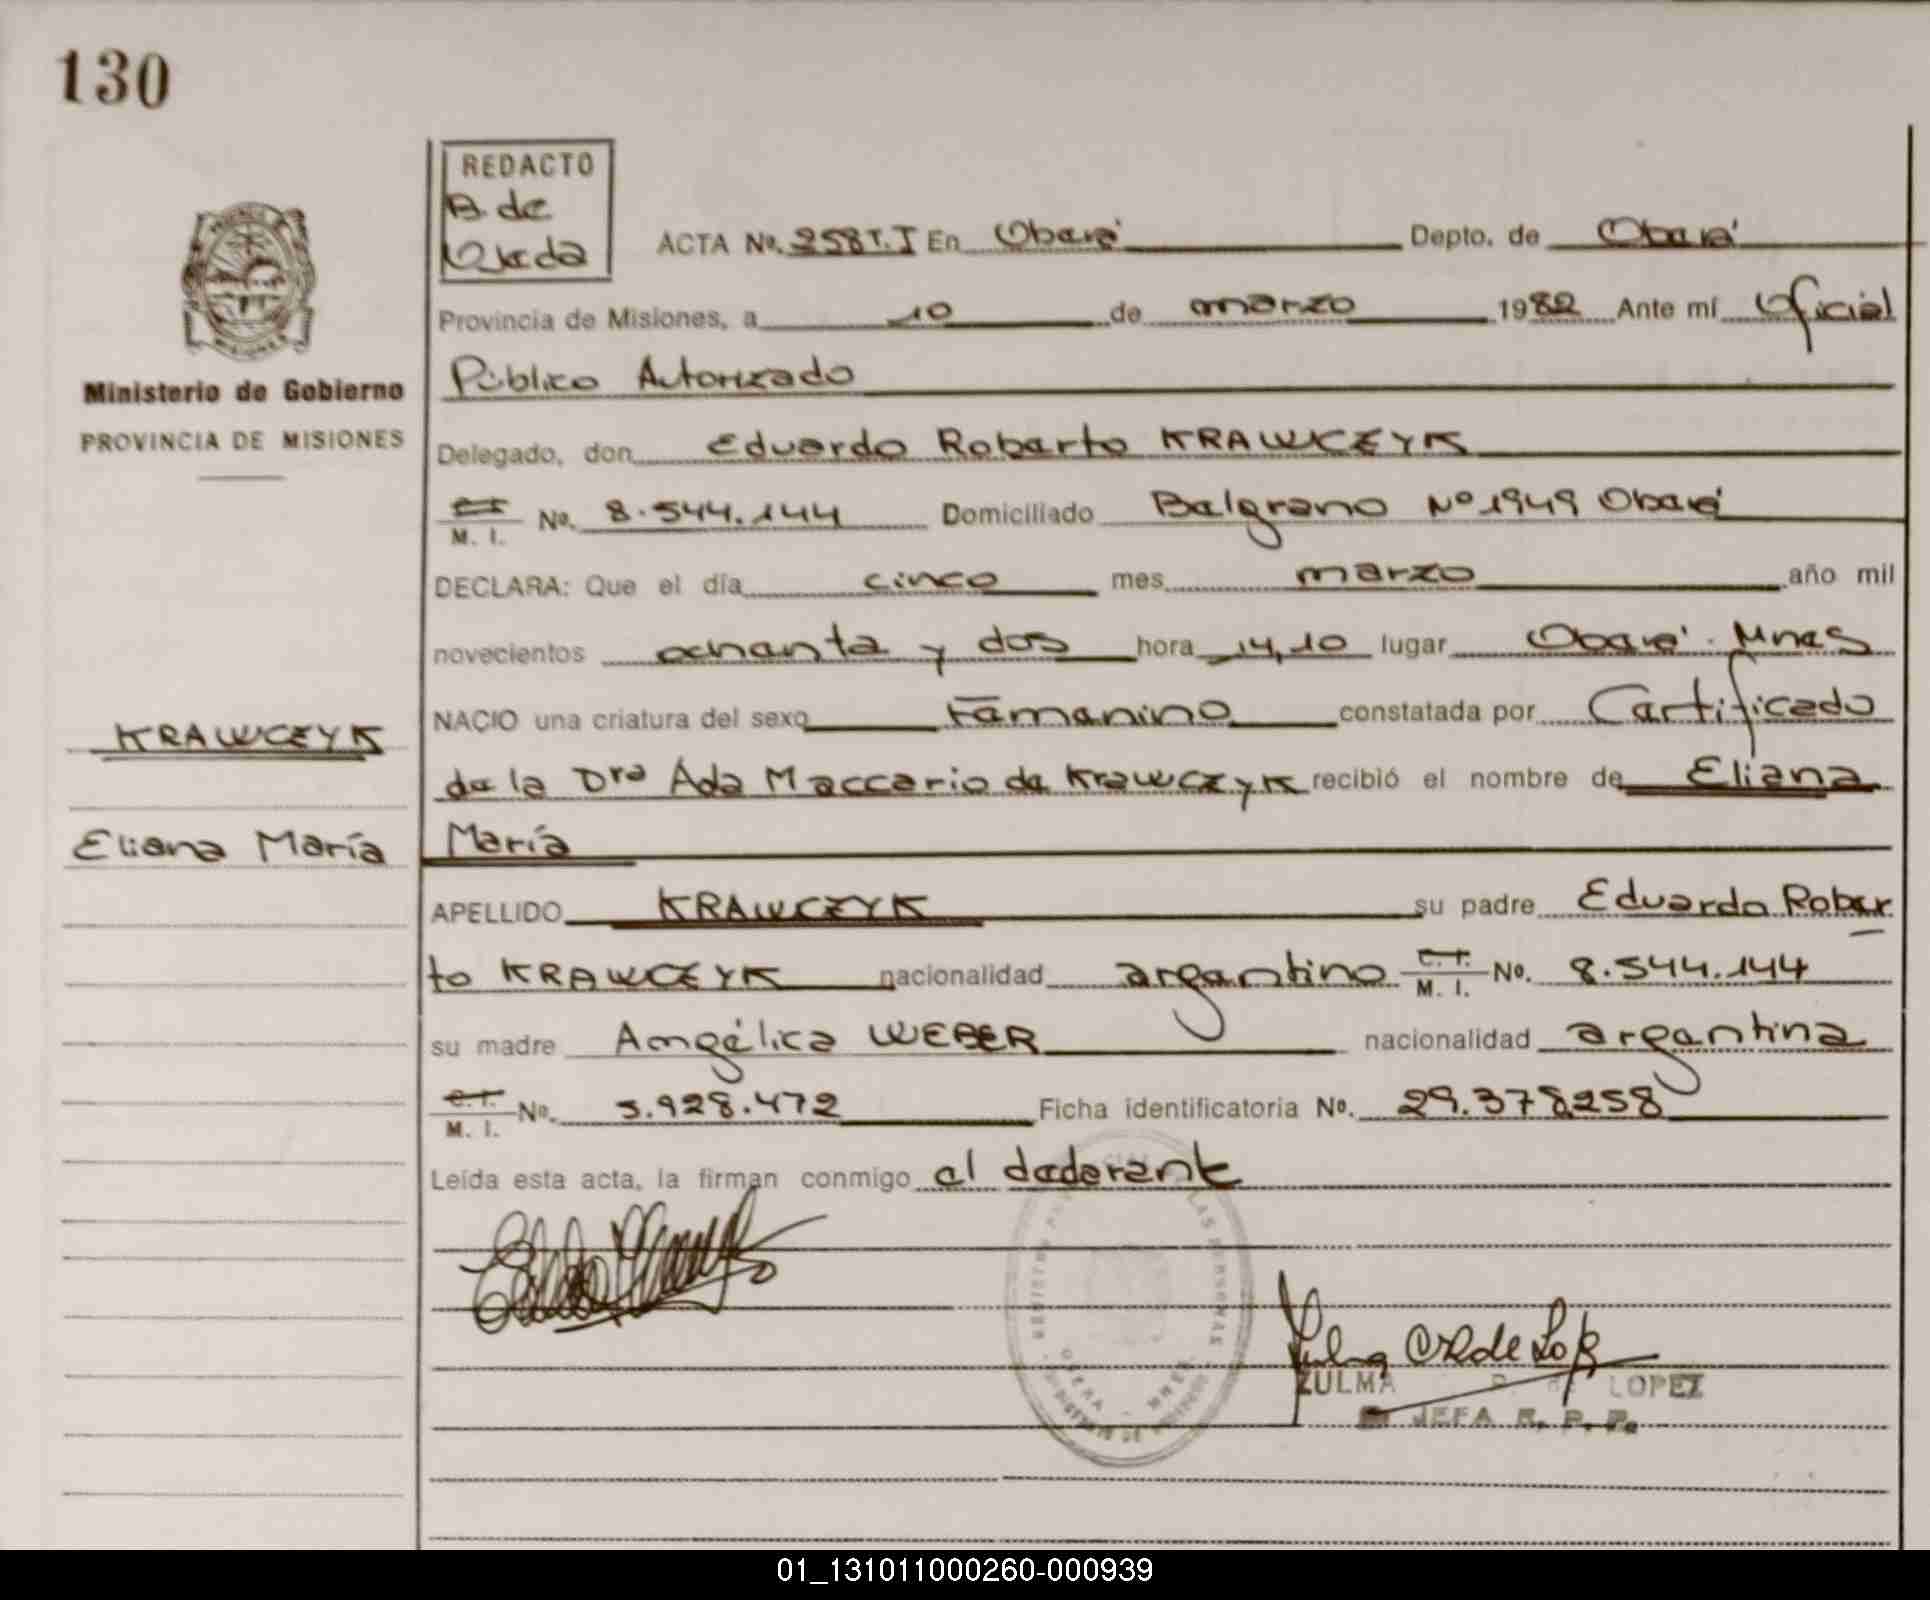 130
REDACTO
B. de
Ojeda
ACTA No. 258 T. I En Oberá Depto. de Oberá
Provincia de Misiones, a 10 de marzo 1982 Ante mí Oficial
Público Autorizado
Ministerio de Gobierno
PROVINCIA DE MISIONES
Delegado, don Eduardo Roberto KRAWCZYK
C. I. M. I. No. 8.544.144 Domiciliado Belgrano Nº 1949 Oberá
DECLARA: Que el día cinco mes marzo año mil
novecientos ochenta y dos hora 14,10 lugar Oberá. Mnes
NACIO una criatura del sexo Femenino constatada por Certificado
KRAWCZYK
de la Dra Ada Maccario de Krawczyk recibió el nombre de Eliana
Eliana María
María
APELLIDO KRAWCZYK su padre Eduardo Rober
to KRAWCZYK nacionalidad argentino C. I. M. I. No. 8.544.144
su madre Angélica WEBER nacionalidad argentina
C. I. M. I. No. 5.928.472 Ficha identificatoria No. 29.378258
Leída esta acta, la firman conmigo el declarante
ZULMA LOPEZ
JEFA R. P. P.
01_131011000260-000939